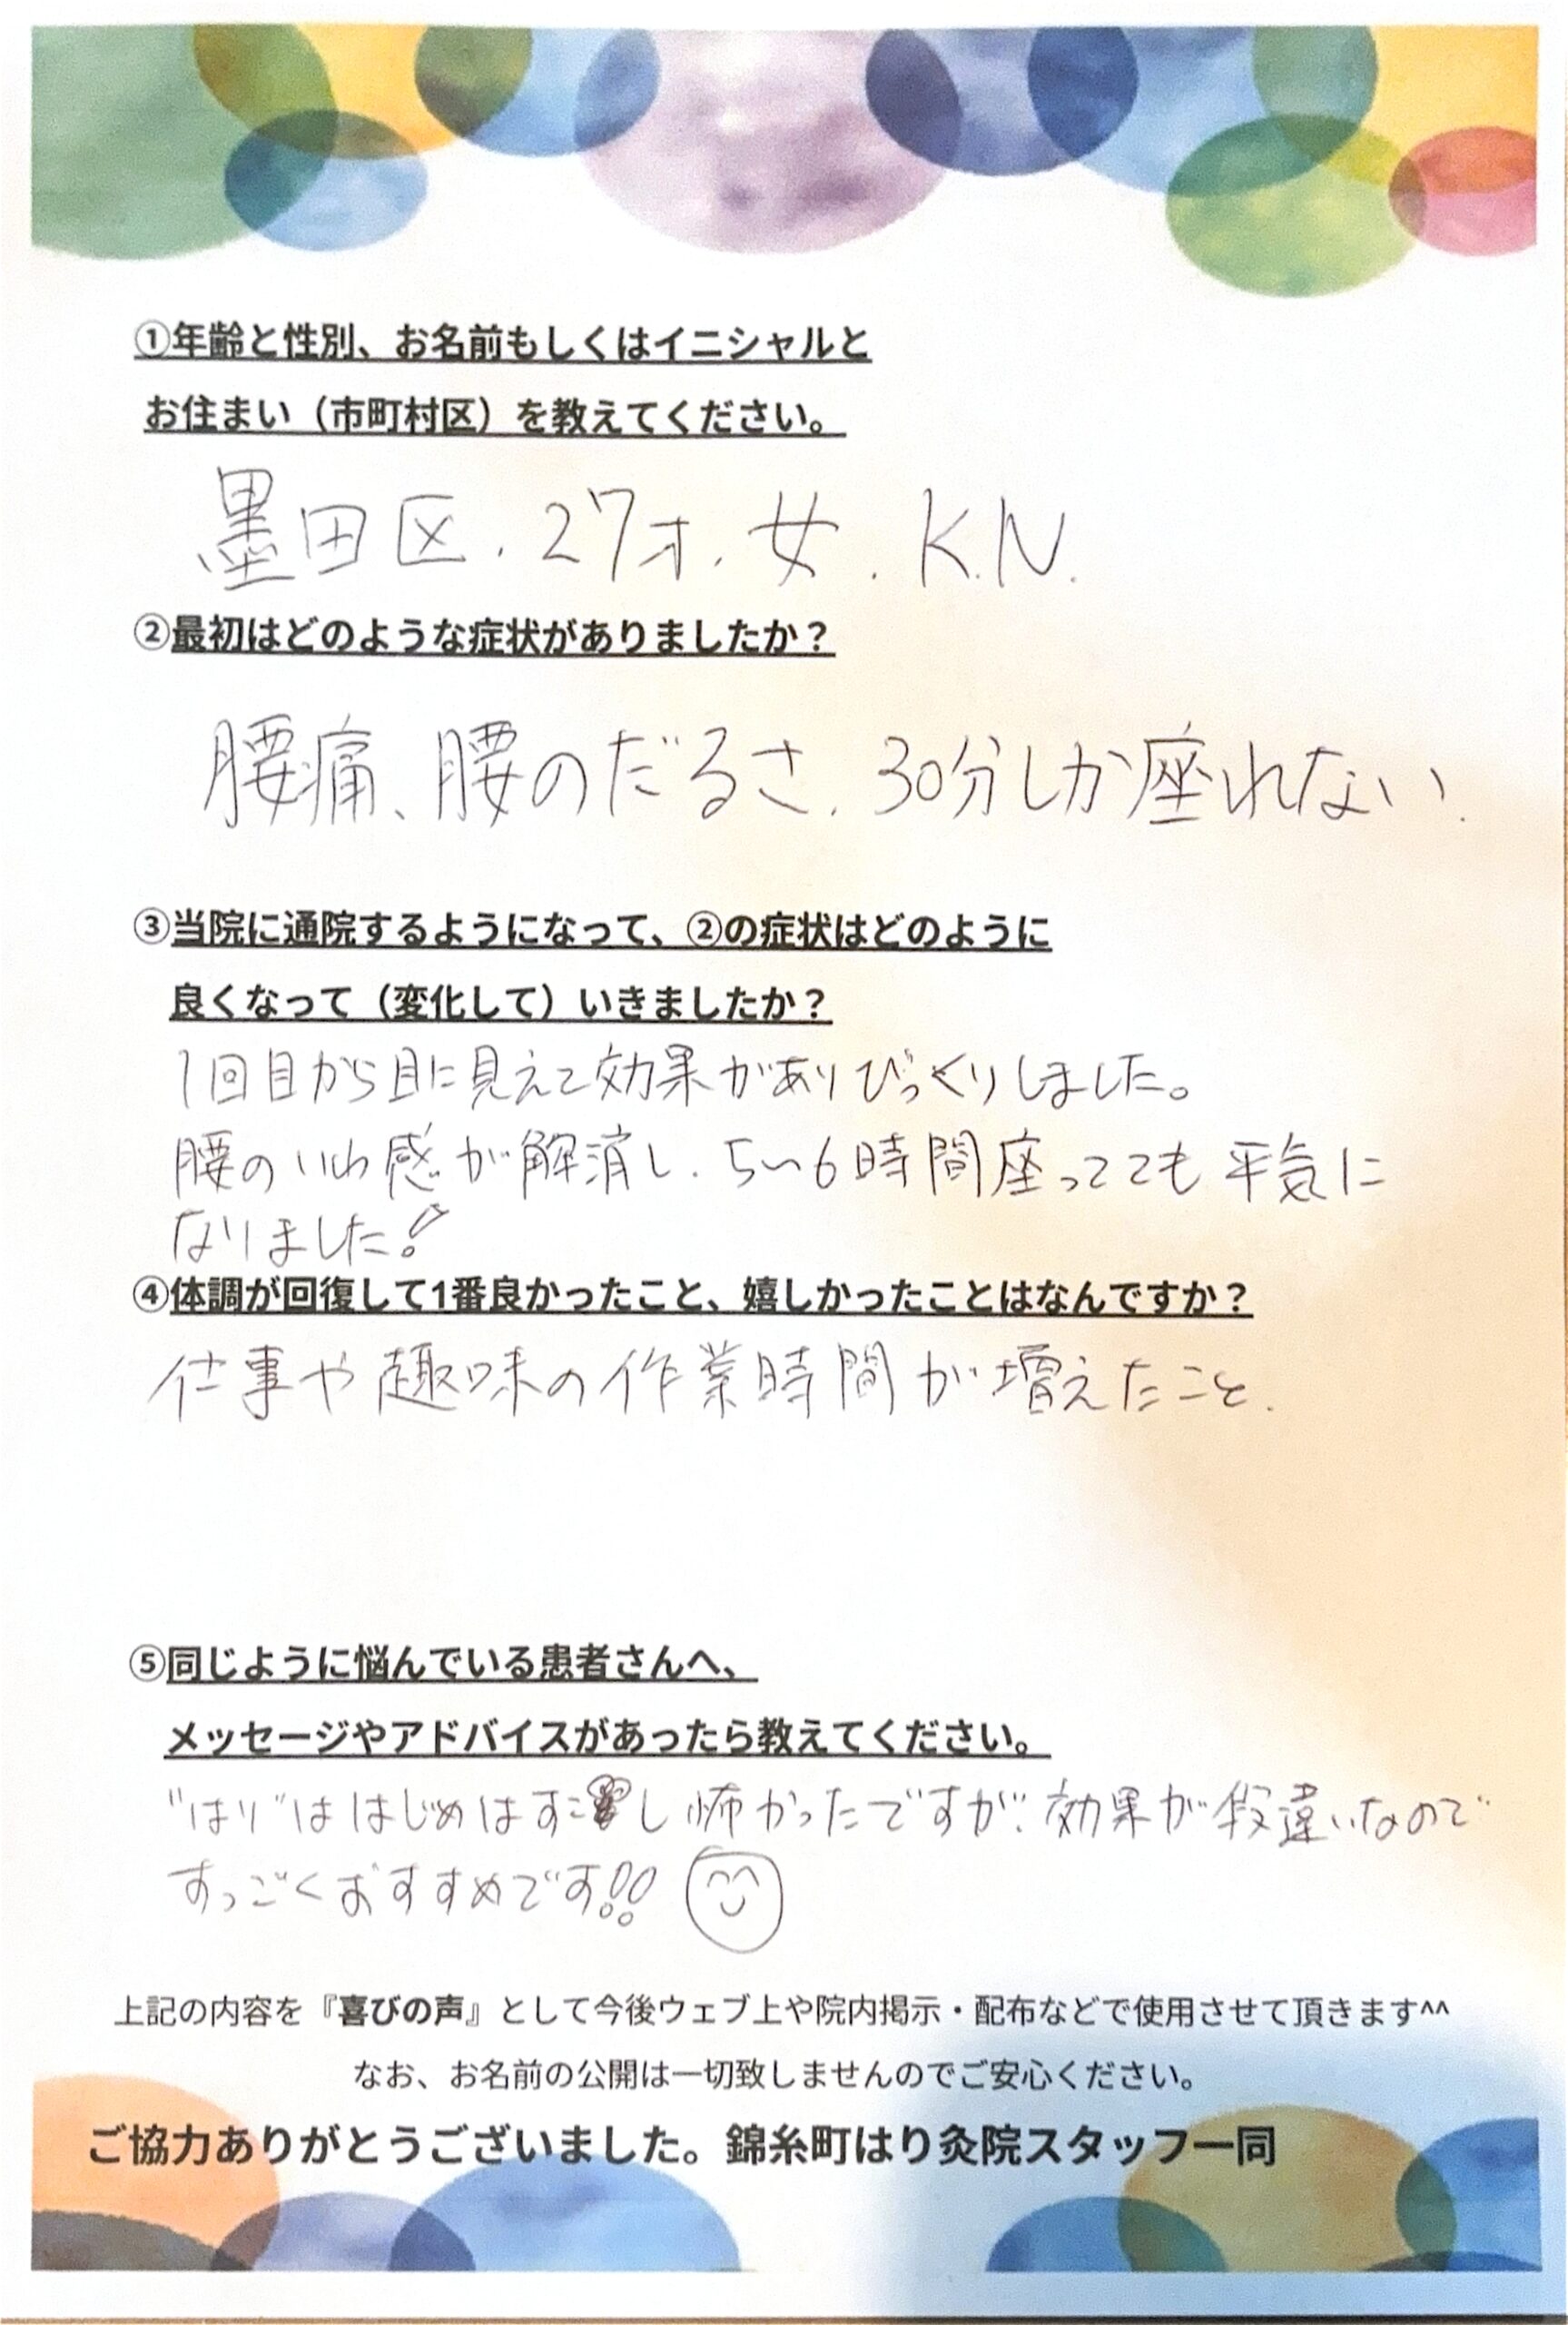 ①年齢と性別、お名前もしくはイニシャルと
お住まい（市町村区）を教えてください。
墨田区.27才.女.K.N.
②最初はどのような症状がありましたか？
腰痛、腰のだるさ.30分しか座れない.
③当院に通院するようになって、②の症状はどのように
良くなって（変化して）いきましたか？
1回目から目に見えて効果がありびっくりしました。
腰のいわ感が解消し.5〜6時間座ってても平気に
なりました!
④体調が回復して1番良かったこと、嬉しかったことはなんですか？
仕事や趣味の作業時間が増えたこと.
⑤同じように悩んでいる患者さんへ、
メッセージやアドバイスがあったら教えてください。
"はり"ははじめはすこし怖かったですが.効果が段違いなので
すっごくおすすめです!!
上記の内容を『喜びの声』として今後ウェブ上や院内掲示・配布などで使用させて頂きます^^
なお、お名前の公開は一切致しませんのでご安心ください。
ご協力ありがとうございました。錦糸町はり灸院スタッフ一同